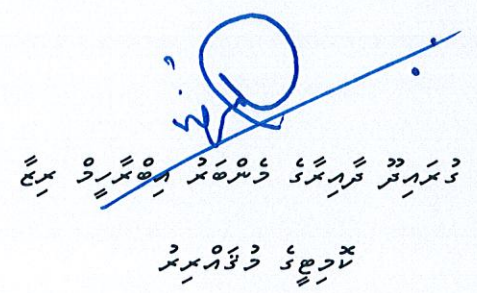 ގުރައިދޫ ދާއިރާގެ މެންބަރު އިބްރާހީމް ރިޒާ
ކޮމިޓީގެ މުޤައްރިރު